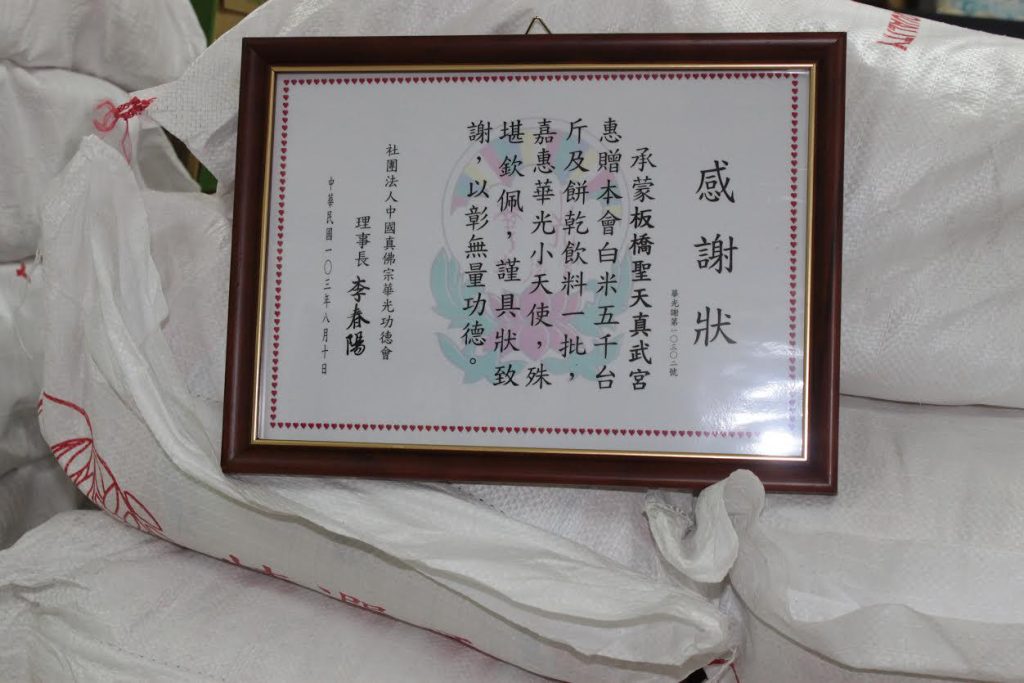 感謝狀
華光謝第一〇三〇二號
承蒙板橋聖天真武宮
惠贈本會白米五千台
斤及餅乾飲料一批，
嘉惠華光小天使，殊
堪欽佩，謹具狀致
謝，以彰無量功德。
社團法人中國真佛宗華光功德會
理事長 李春陽
中華民國一〇三年八月十日